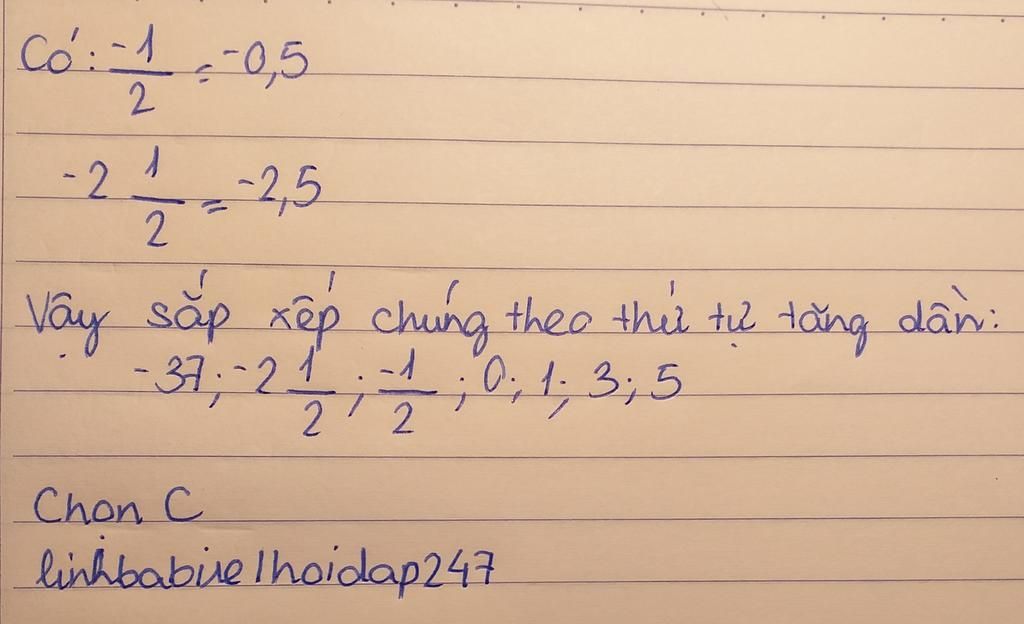 Có: -1/2 = -0,5
-2 1/2 = -2,5
Vậy sắp xếp chúng theo thứ tự tăng dần:
-37; -2 1/2; -1/2; 0; 1; 3; 5
Chọn C
linhbabiie1hoidap247